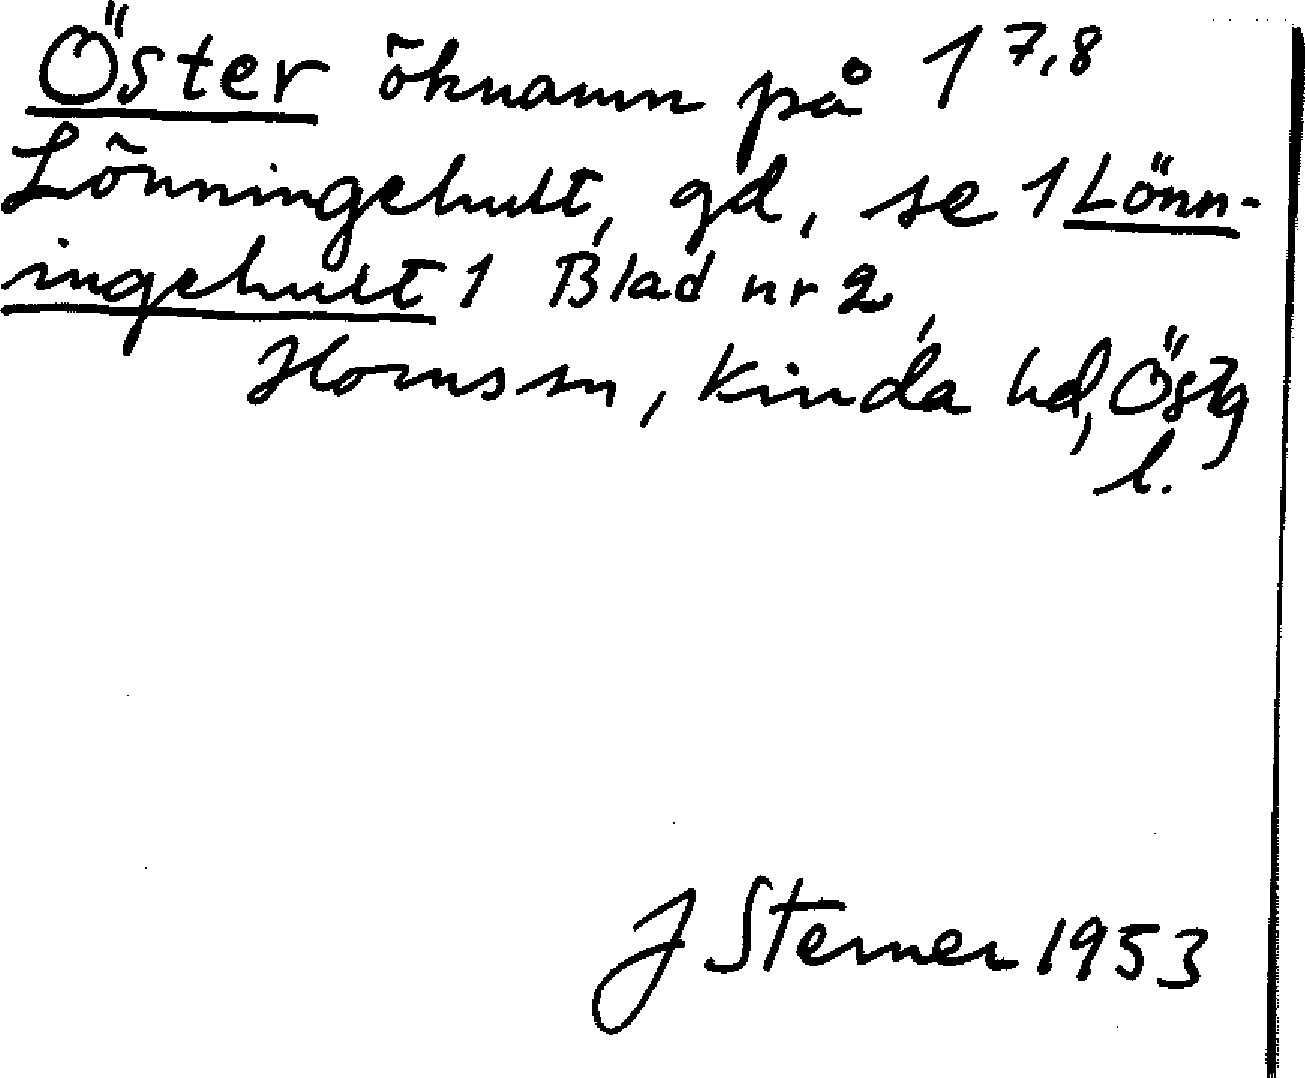 Öster öknamn på 1 7,8
Lönningehult, gd, se 1 Lönn-
ingehult 1 Blad nr 2,
Horns sn, Kinda hd, Östg
l.
J Sterner 1953